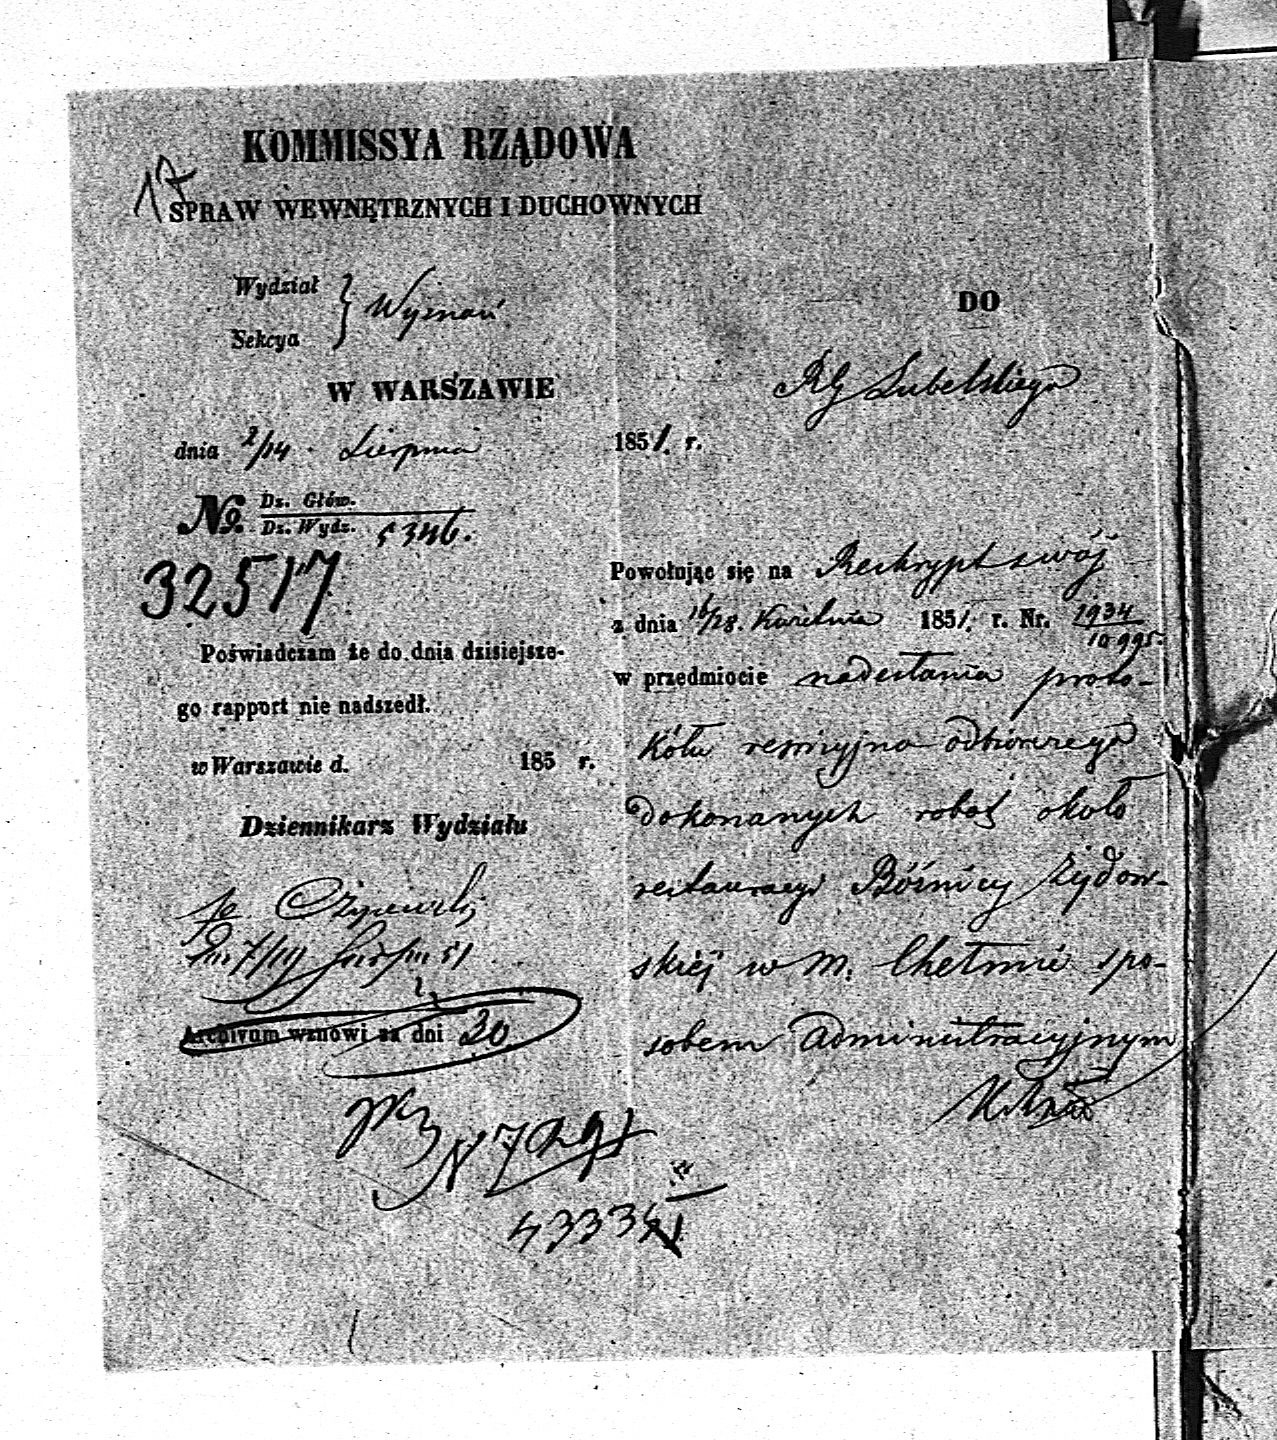 KOMMISSYA RZĄDOWA
17
SPRAW WEWNĘTRZNYCH I DUCHOWNYCH
Wydział
Sekcya } Wyznań
W WARSZAWIE
dnia 2/14 Sierpnia 1851. r.
No. Dz. Głów.
Dz. Wydz. 5346.
32517
Poświadczam że do dnia dzisiejsze-
go rapport nie nadszedł.
w Warszawie d. 185 r.
Dziennikarz Wydziału
Archivum wznowi za dni 30
DO
RG Lubelskiego
Powołując się na Reskrypt swój
z dnia 16/28. Kwietnia 1851. r. Nr. 1934/10995
w przedmiocie nadesłania proto-
kółu rewizyjno odbiorczego
dokonanych robót około
restauracyi Bóżnicy Żydow-
skiéj w m. Chełmie spo-
sobem administracyjnym
43334